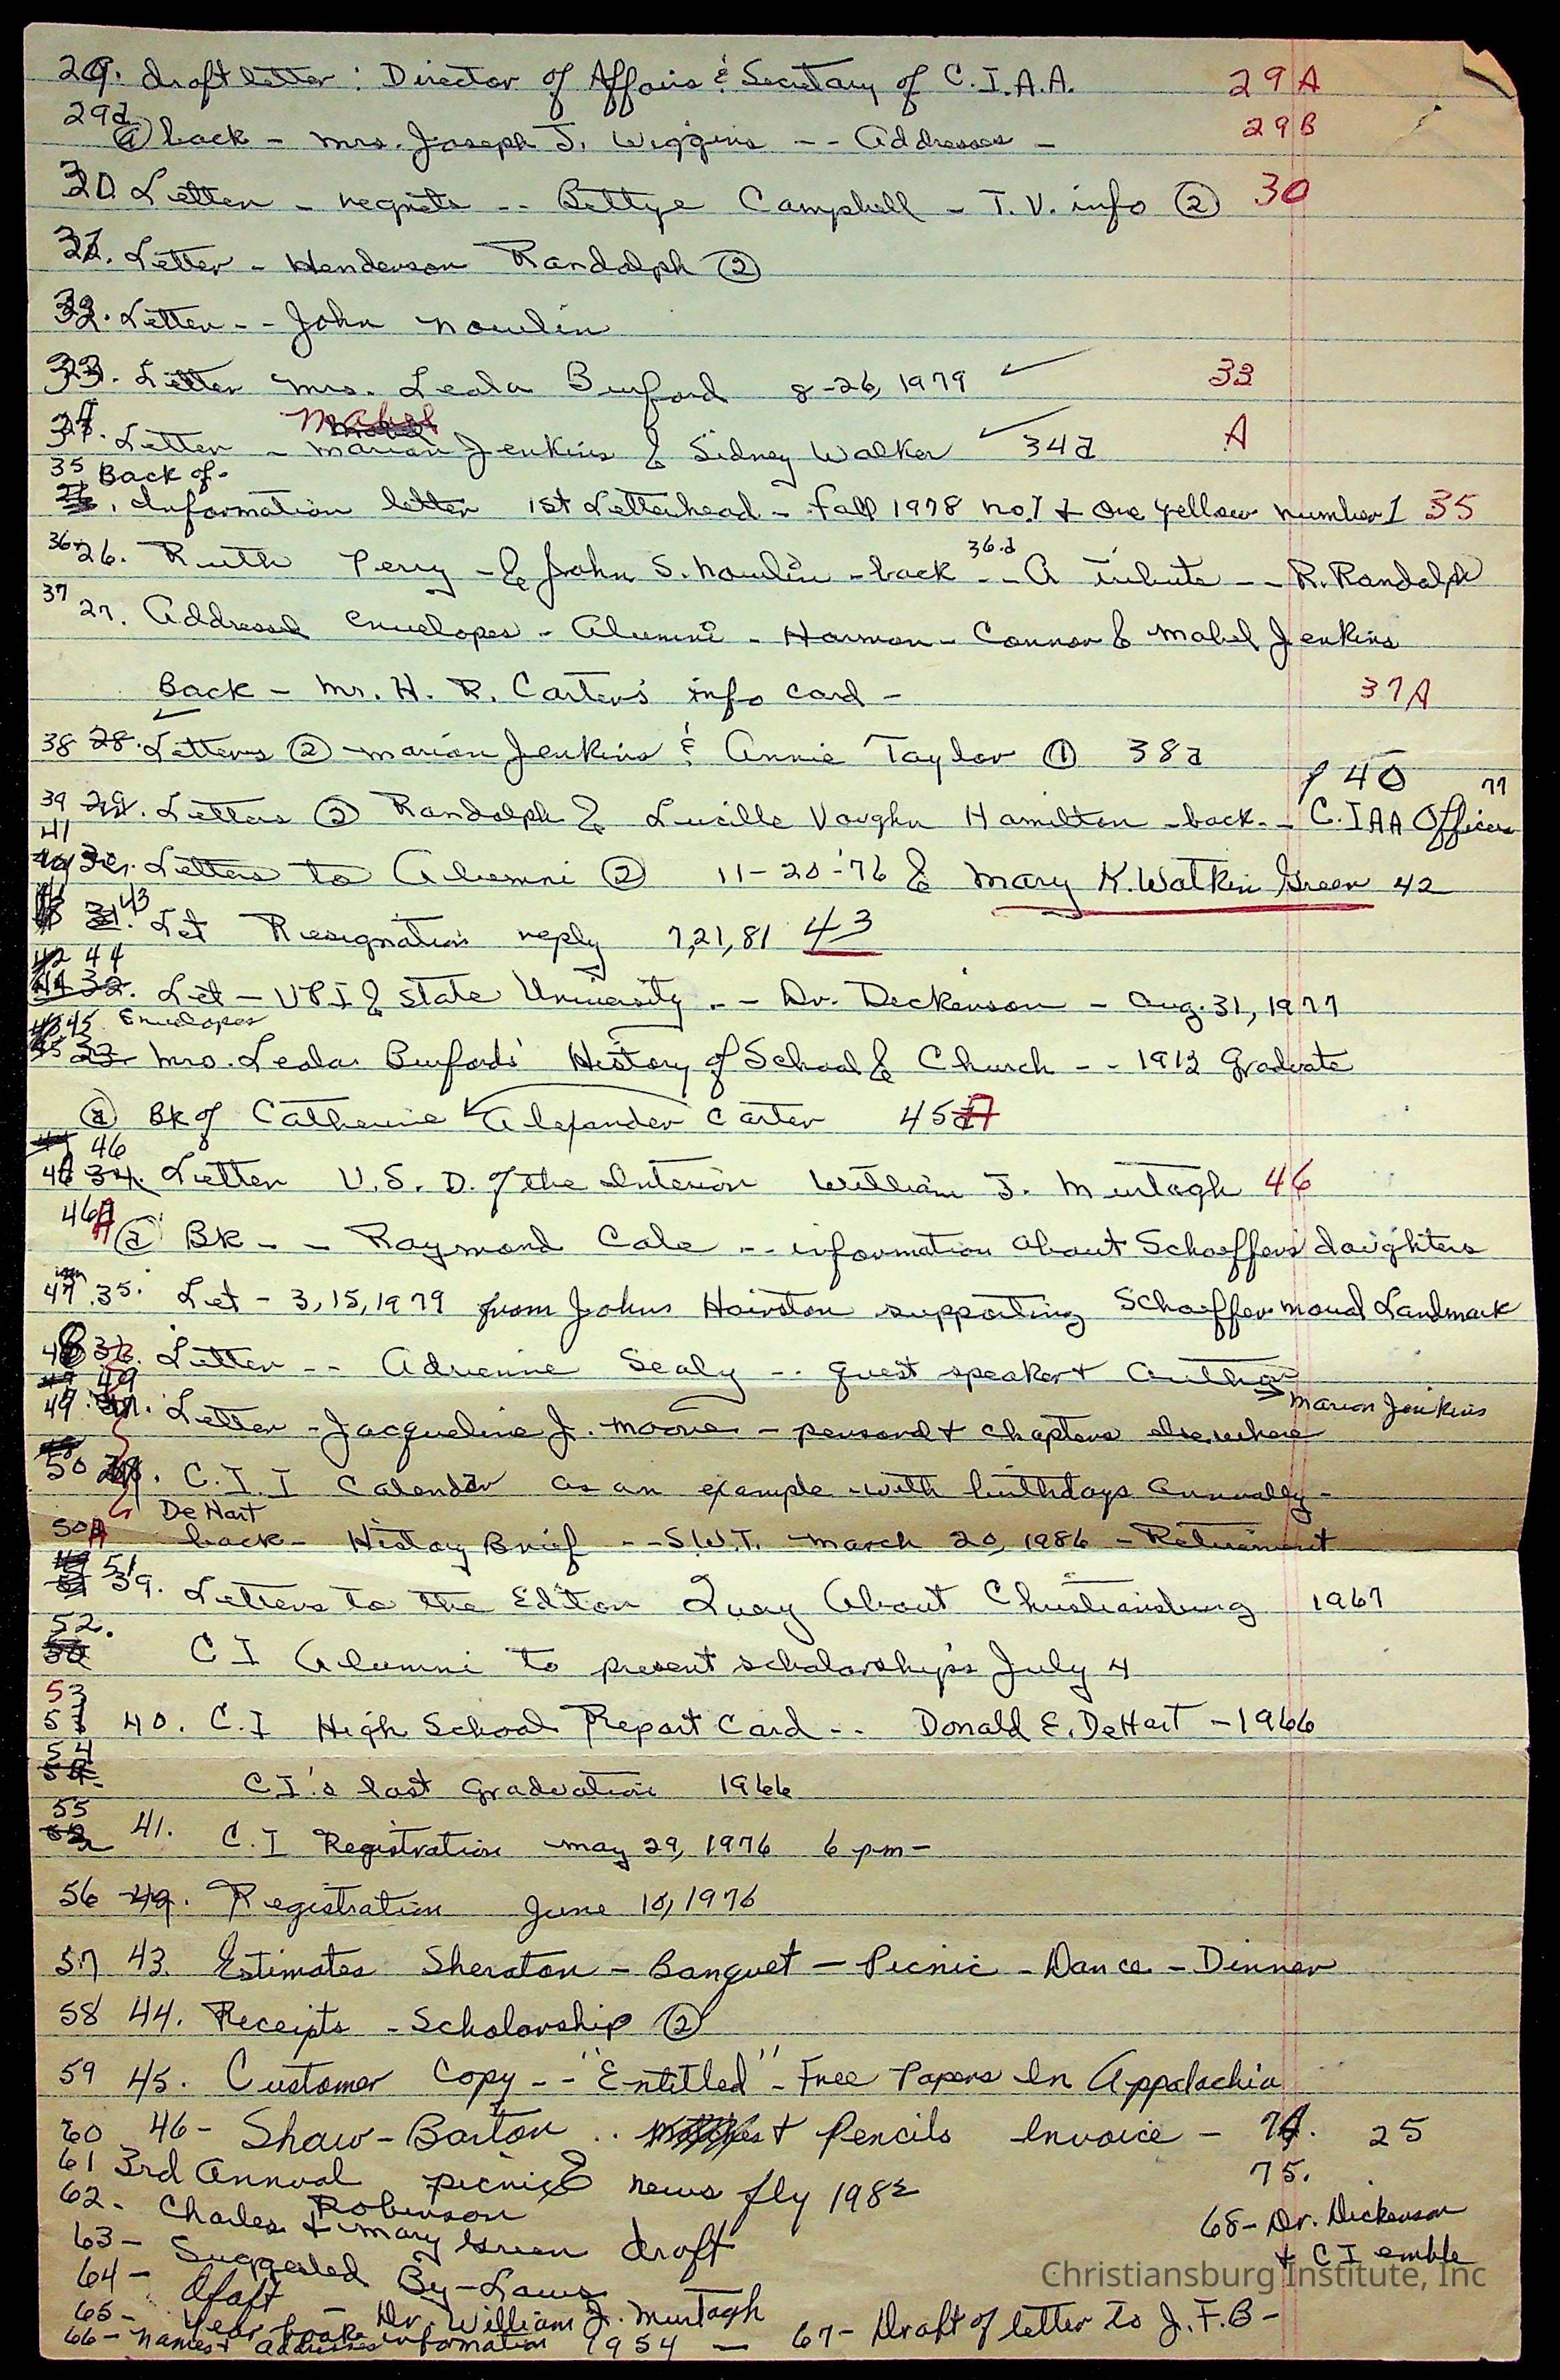 29. draft letter: Director of Affairs & Secretary of C.I.A.A. 29A
29a (a) back - Mrs. Joseph J. Wiggins -- Addresses - 29B
30. Letter - regrets -- Bettye Campbell - T.V. info (2) 30
31. Letter - Henderson Randolph (2)
32. Letter -- John Nowlin
33. Letter Mrs. Leola Burford 8-26, 1979 ✓ 33
Mabel
34. Letter - Marion Jenkins & Sidney Walker ✓ 34a A
35 Back of-
Information letter 1st Letterhead - Fall 1978 no. 1 & One yellow number 1 35
36 26. Ruth Perry - & John S. Nowlin - back 36.a -- A Tribute -- R. Randolph
37 27. Addressed envelopes - Alumni - Harmon - Connor & Mabel Jenkins
Back - Mr. H. R. Carter's info card - 37A
38 28. Letters (2) Marion Jenkins & Annie Taylor (1) 38a
40 77
39 29. Letters (2) Randolph & Lucille Vaughn Hamilton - back - - C.IAA Officers
41
30. Letters to Alumni (2) 11-20-'76 & Mary K. Watkin Green 42
31. 43 Let Resignation reply 7,21,81 43
42 44
44 32. Let - VPI & State University -- Dr. Deckenson - Aug. 31, 1977
45 Envelopes
33 Mrs. Leola Burfords' History of School & Church -- 1912 graduate
(a) Bk of Catherine Alexander Carter 45A
46
46 34. Letter U.S. D. of the Interior William J. Murtagh 46
46A (a) Bk -- Raymond Cale -- information about Schaeffers' daughters
47. 35. Let - 3,15,1979 from Johns Hairston supporting Schaeffer moud Landmark
48 36. Letter -- Adrienne Sealy -- guest speaker & Author
49 49
49. 37. Letter - Jacqueline J. Moore - personal & chapters elsewhere → Marion Jenkins
50 38. C.I.I Calendar as an example - with birthdays annually -
DeHart
50A back - History Brief -- S.W.T. March 20, 1986 - Retirement
51 39. Letters to the Editor Quay About Christiansburg 1967
52.
C I Alumni to present scholarships July 4
53
40. C.I High School Report Card -- Donald E. DeHart - 1966
54
CI's last Graduation 1966
55
41. C.I Registration May 29, 1976 6 pm -
56 42. Registration June 10, 1976
57 43. Estimates Sheraton - Banquet - Picnic - Dance - Dinner
58 44. Receipts - Scholarship (2)
59 45. Customer Copy -- "Entitled" - Free Papers In Appalachia
60 46 - Shaw-Barton .. & Pencils Invoice - 74. 25
61 3rd Annual picnic & news fly 1982 75.
62. Charles Robinson & Mary Green draft
63 - Suggested By-Laws
64 - Draft - Dr. William J. Murtagh
65 - Year book information 1954 -
66 - names & Addresses
67 - Draft of letter to J.F.B -
68 - Dr. Dickenson
& CI emble
Christiansburg Institute, Inc